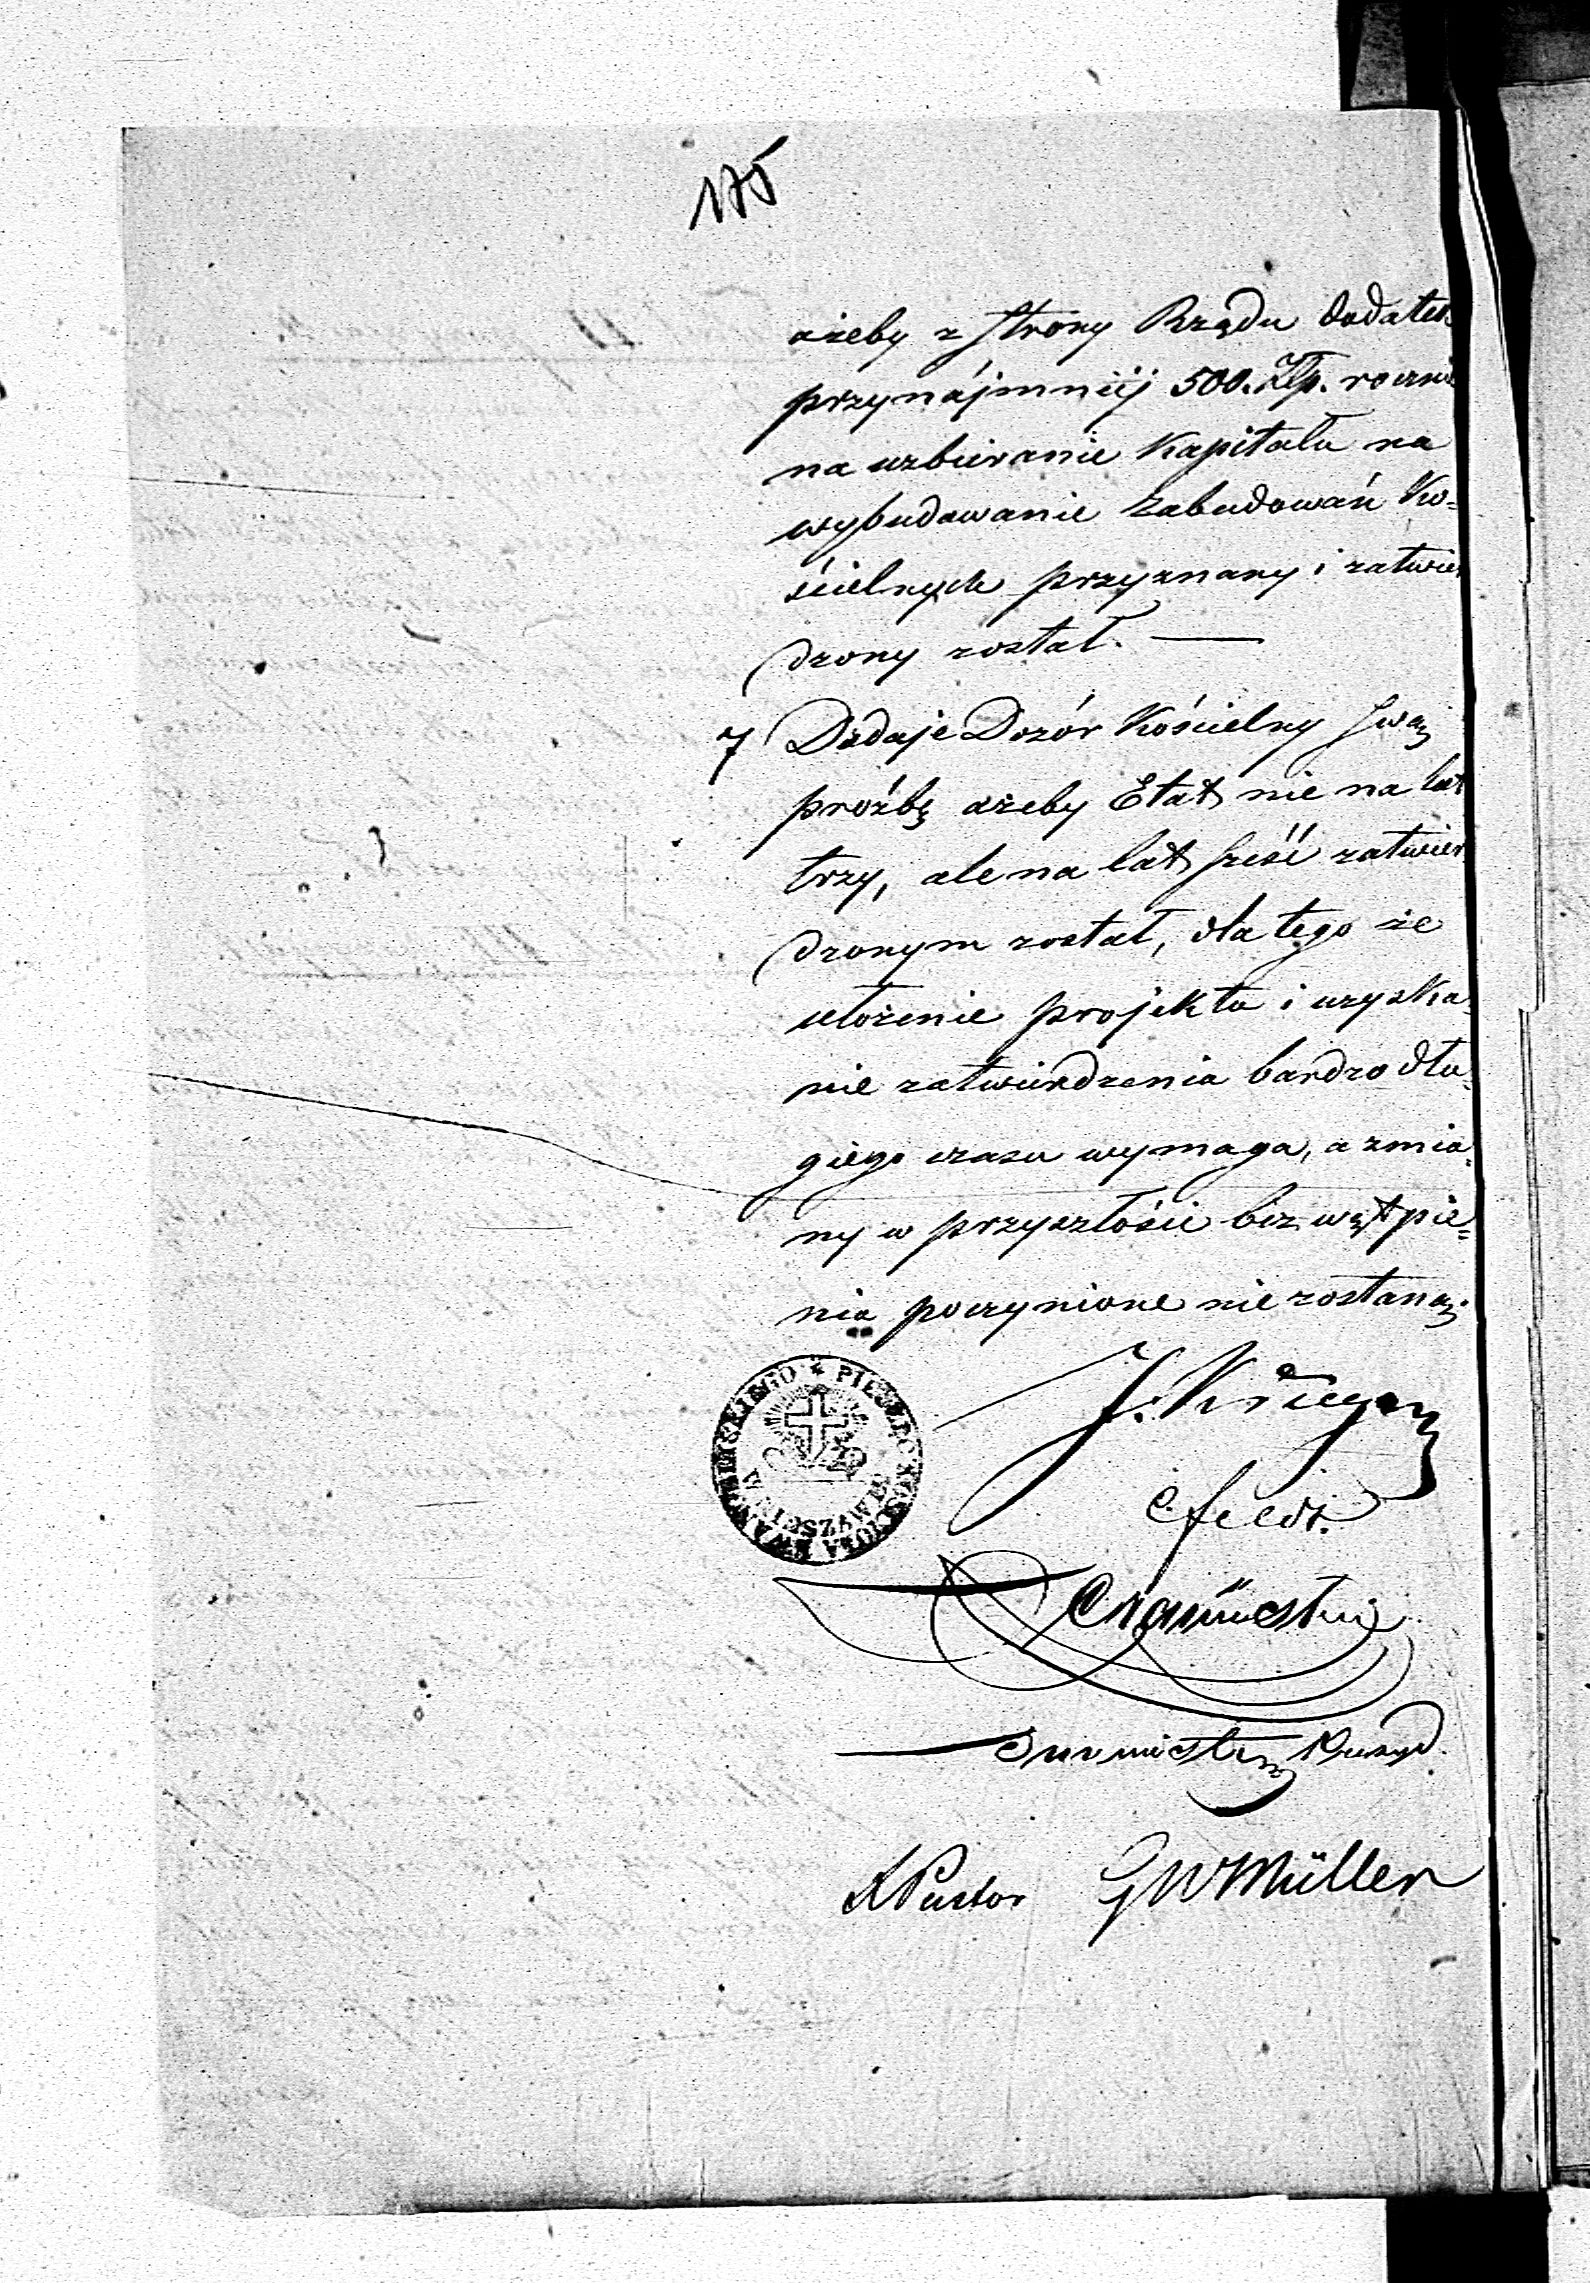 175
ażeby z strony Rządu dodatek
przynájmniéj 500. Złp. rocznie
na uzbieranie Kapitału na
wybudowanie zabudowań Ko-
ścielnych przyznany i zatwier
dzony został. —
7 Dodaje Dozór Kościelny swą
proźbę ażeby Etat nie na lat
trzy, ale na lat sześć zatwier
dzonym został, dla tego że
ułożenie projektu i uzyska-
nie zatwierdzenia bardzo dłu-
giego czasu wymaga, a zmia-
ny w przyszłości bez wątpie=
nia poczynione nie zostaną.
PIECZĘĆ KOŚCIOŁA EWANGELICKIEGO
W NIESZAWIE
J. Krüger
Pastor GW Müller